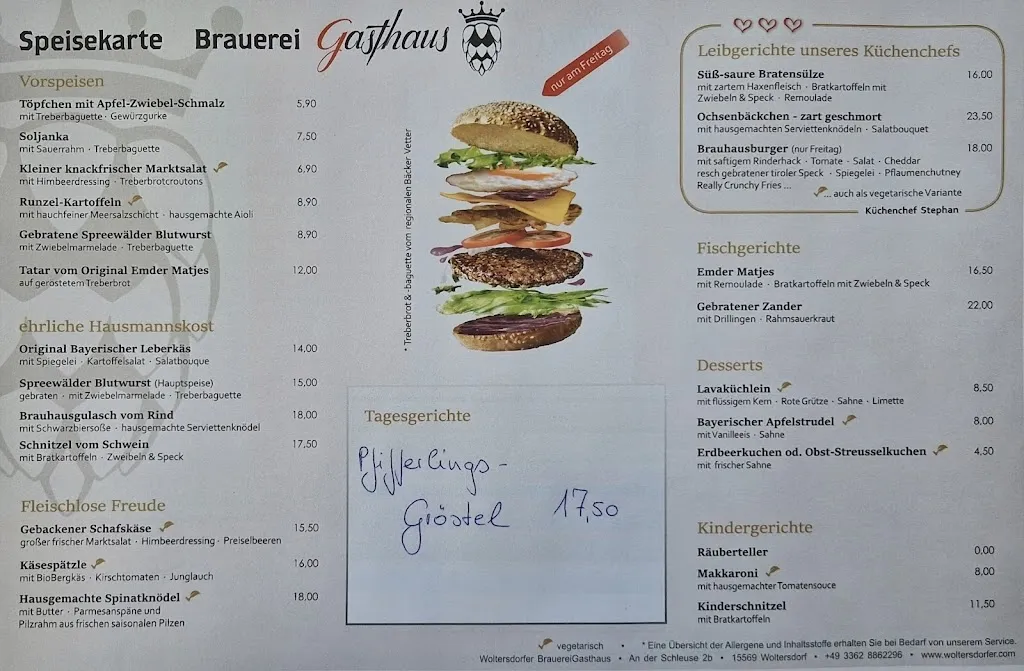 Speisekarte Brauerei Gasthaus
Vorspeisen
Töpfchen mit Apfel-Zwiebel-Schmalz 5,90
mit Treberbaguette · Gewürzgurke
Soljanka 7,50
mit Sauerrahm · Treberbaguette
Kleiner knackfrischer Marktsalat 6,90
mit Himbeerdressing · Treberbrotcroutons
Runzel-Kartoffeln 8,90
mit hauchfeiner Meersalzschicht · hausgemachte Aioli
Gebratene Spreewälder Blutwurst 8,90
mit Zwiebelmarmelade · Treberbaguette
Tatar vom Original Emder Matjes 12,00
auf geröstetem Treberbrot
ehrliche Hausmannskost
Original Bayerischer Leberkäs 14,00
mit Spiegelei · Kartoffelsalat · Salatbouque
Spreewälder Blutwurst (Hauptspeise) 15,00
gebraten · mit Zwiebelmarmelade · Treberbaguette
Brauhausgulasch vom Rind 18,00
mit Schwarzbiersoße · hausgemachte Serviettenknödel
Schnitzel vom Schwein 17,50
mit Bratkartoffeln · Zweibeln & Speck
Fleischlose Freude
Gebackener Schafskäse 15,50
großer frischer Marktsalat · Himbeerdressing · Preiselbeeren
Käsespätzle 16,00
mit BioBergkäs · Kirschtomaten · Junglauch
Hausgemachte Spinatknödel 18,00
mit Butter · Parmesanspäne und
Pilzrahm aus frischen saisonalen Pilzen
nur am Freitag
* Treberbrot & -baguette vom regionalen Bäcker Vetter
Tagesgerichte
Pfifferlings-
Gröstel 17,50
Leibgerichte unseres Küchenchefs
Süß-saure Bratensülze 16,00
mit zartem Haxenfleisch · Bratkartoffeln mit
Zwiebeln & Speck · Remoulade
Ochsenbäckchen - zart geschmort 23,50
mit hausgemachten Serviettenknödeln · Salatbouquet
Brauhausburger (nur Freitag) 18,00
mit saftigem Rinderhack · Tomate · Salat · Cheddar
resch gebratener tiroler Speck · Spiegelei · Pflaumenchutney
Really Crunchy Fries ...
... auch als vegetarische Variante
Küchenchef Stephan
Fischgerichte
Emder Matjes 16,50
mit Remoulade · Bratkartoffeln mit Zwiebeln & Speck
Gebratener Zander 22,00
mit Drillingen · Rahmsauerkraut
Desserts
Lavaküchlein 8,50
mit flüssigem Kern · Rote Grütze · Sahne · Limette
Bayerischer Apfelstrudel 8,00
mit Vanilleeis · Sahne
Erdbeerkuchen od. Obst-Streusselkuchen 4,50
mit frischer Sahne
Kindergerichte
Räuberteller 0,00
Makkaroni 8,00
mit hausgemachter Tomatensouce
Kinderschnitzel 11,50
mit Bratkartoffeln
vegetarisch • * Eine Übersicht der Allergene und Inhaltsstoffe erhalten Sie bei Bedarf von unserem Service.
Woltersdorfer BrauereiGasthaus • An der Schleuse 2b • 15569 Woltersdorf • +49 3362 8862296 • www.woltersdorfer.com